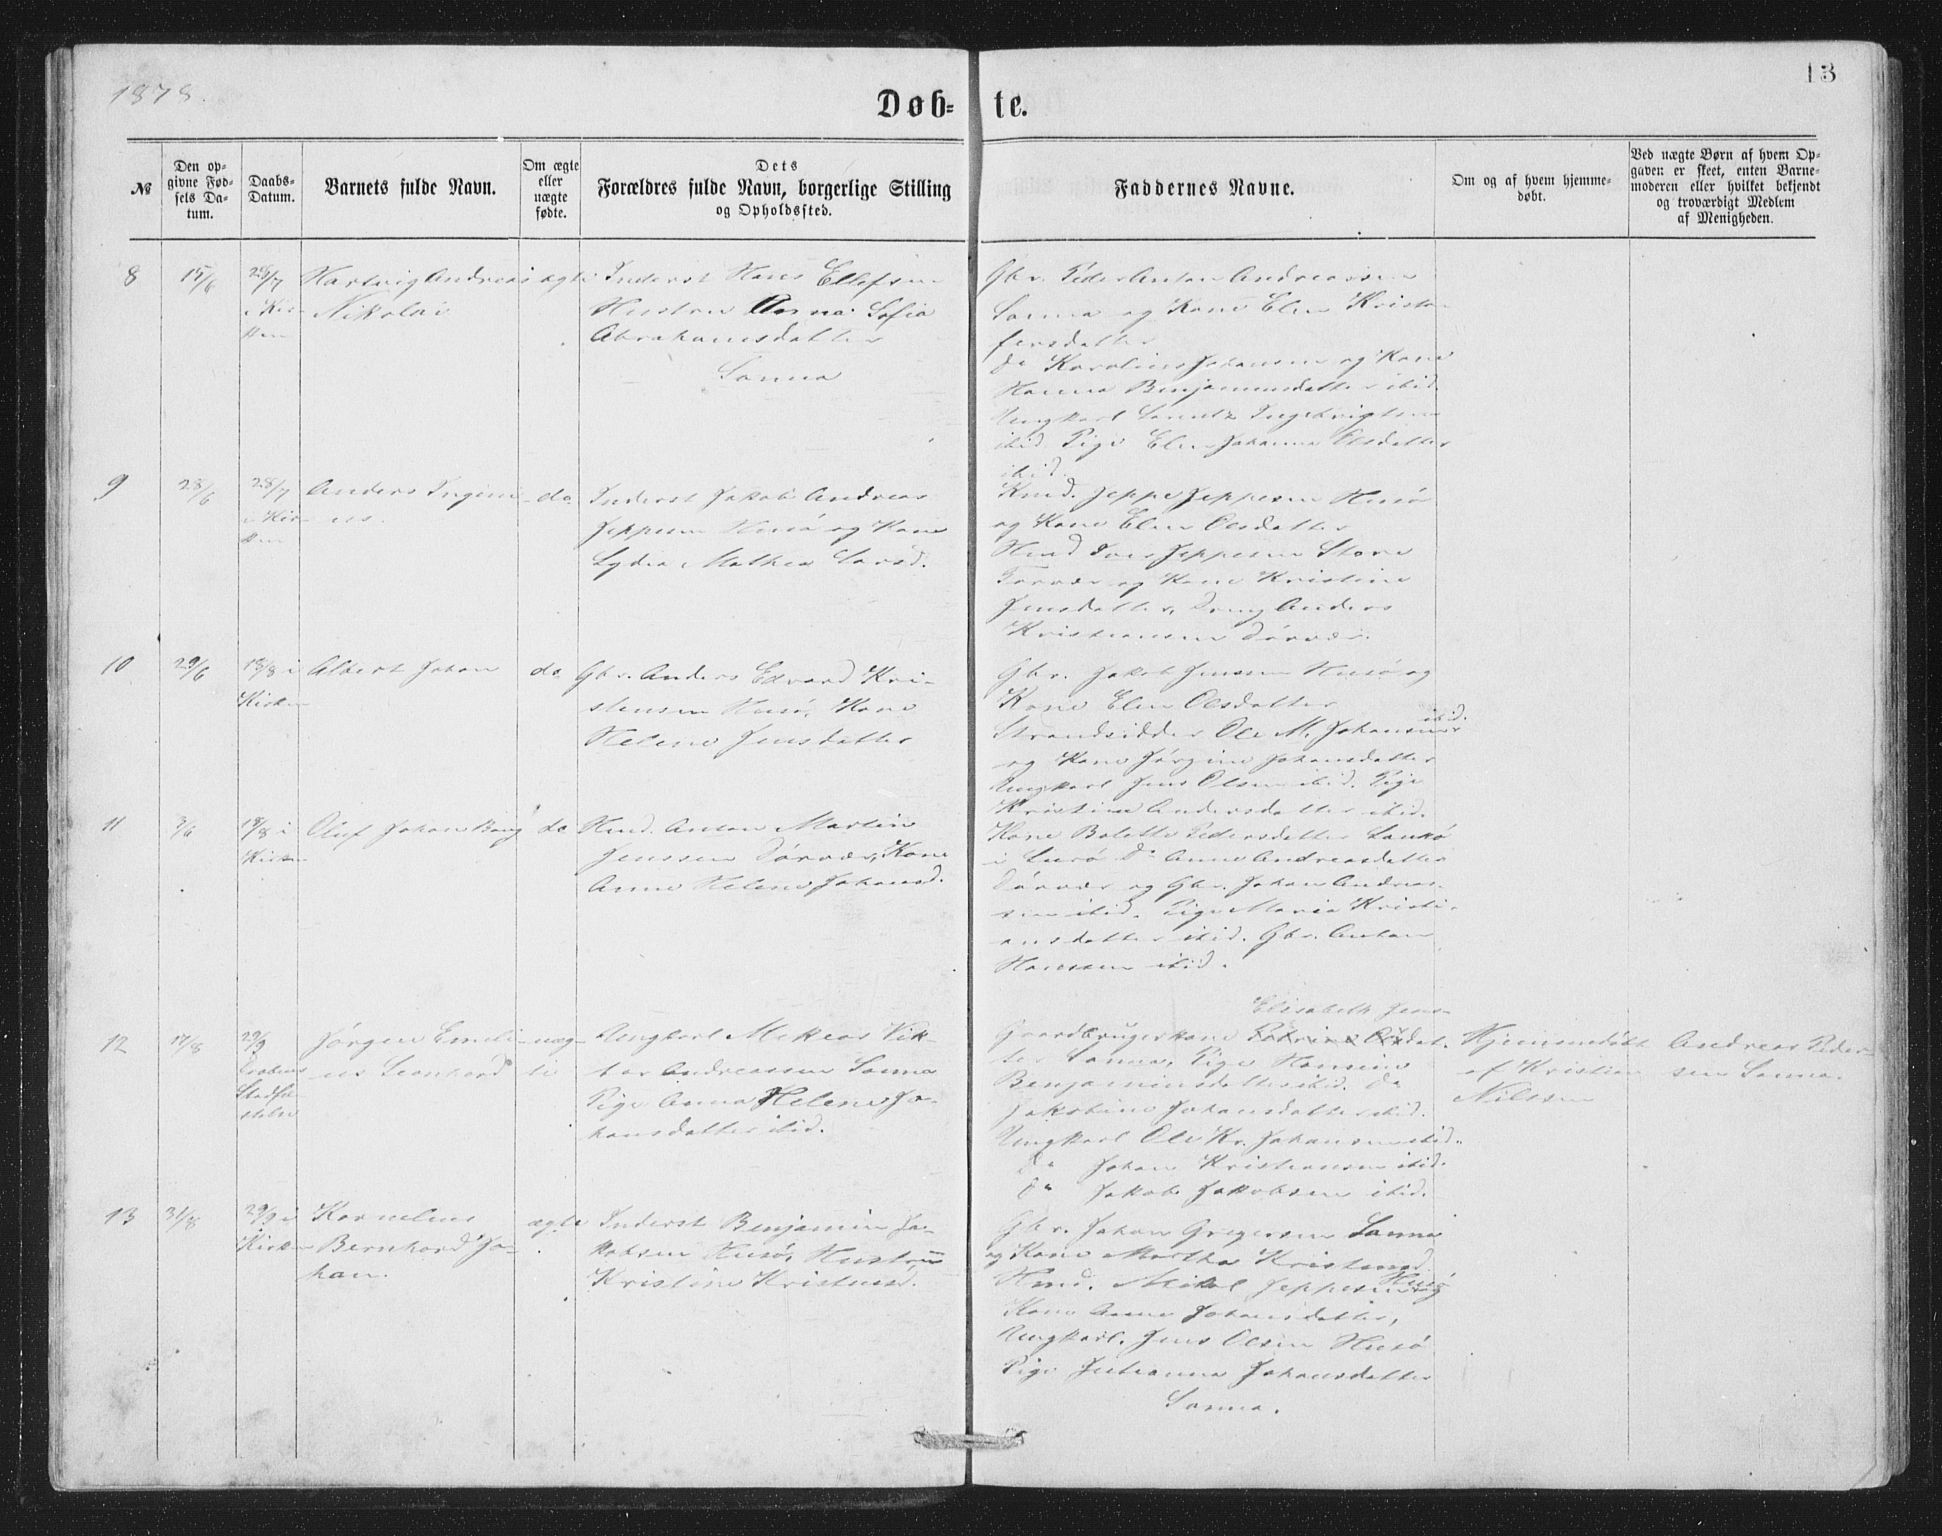 1878.
13
Døb- te.
№
Den op-
givne Fød-
sels Da-
tum.
Daabs-
Datum.
Barnets fulde Navn.
Om ægte
eller
uægte
fødte.
Dets
Forældres fulde Navn, borgerlige Stilling
og Opholdssted.
Faddernes Navne.
Om og af hvem hjemme-
døbt.
Ved uægte Børn af hvem Op-
gaven er skeet, enten Barne-
moderen eller hvilket bekjendt
og troværdigt Medlem
af Menigheden.
8
15/6
28/7
i Kir-
ken
Hartvig Andreas
Nikolai
ægte
Inderst Hans Ellefsen
Hustru Anna Sofia
Abrahamsdatter
Sanna
Gbr. Peder Anton Andreassen
Sanna og Kone Elen Kristo-
fersdatter
do Karolius Johansen og Kone
Hanna Benjaminsdatter ibid.
Ungkarl Lorentz Ingebrigtsen
ibid Pige Elen Johanna Olsdatter
ibid.
9
28/6
28/7
i Kir-
ken
Anders Ingini-
us.
do
Inderst Jakob Andreas
Jeppesen Husø og Kone
Lydia Mathea Larsd.
Kmd. Jeppe Jeppesen Husø
og Kone Elen Olsdatter
Kmd Jens Jeppesen Store
Torvær og Kone Kristine
Jensdatter, Dreng Anders
Kristiansen Dørvær.
10
29/6
18/8 i
Kirken
Albert Johan
do
Gbr. Anders Edvard Kri-
stensen Husø, Kone
Helene Jensdatter
Gbr. Jakob Jenssen Husø og
Kone Elen Olsdatter
Strandsidder Ole M. Johansen ibid.
og Kone Jørgine Johansdatter
Ungkarl Jens Olsen ibid. Pige
Kristine Andersdatter ibid.
11
3/6
18/8 i
Kirken
Oluf Johan Bang
do
Kmd. Anton Martin
Jenssen Dørvær, Kone
Anne Helene Johansd.
Kone Bolette Pedersdatter
i Lurø do Anne Andreasdatter
Dørvær og Gbr. Johan Andreas-
sen ibid. Pige Maria Kristi-
ansdatter ibid. Gbr. Anton
Hanssen ibid.
12
17/8
29/9
Daabens
Stadfæ-
stelse
Jørgen Emili-
us Leonhard
uæg-
te
Ungkarl Mekeas Vik-
tor Andreassen Sanna
Pige Anna Helene Jo-
hansdatter ibid.
Elisabeth Jens-
Gaardbrugerkone Petrine Olsdat-
ter Sanna, Pige Hansine
Benjaminsdatter ibid. do
Jakobine Johansdatter ibid.
Ungkarl Ole Kr. Johansen ibid.
do Johan Kristiansen ibid.
do Jakob Jakobsen ibid.
Hjemmedøbt
af Kristian
Nilsen
Andreas Peder-
sen Sanna.
13
31/8
29/9 i
Kirken
Kornelius
Bernhard Jo-
han.
ægte
Inderst Benjamin Ja-
kobsen Husø, Hustru
Kristine Kristensd.
Gbr. Johan Gregersen Sanna
og Kone Martha Kristensd.
Kmd. Mikal Jeppesen Husø og
Kone Anne Johansdatter,
Ungkarl. Jens Olsen Husø
Pige Julianna Johansdatter
Sanna.